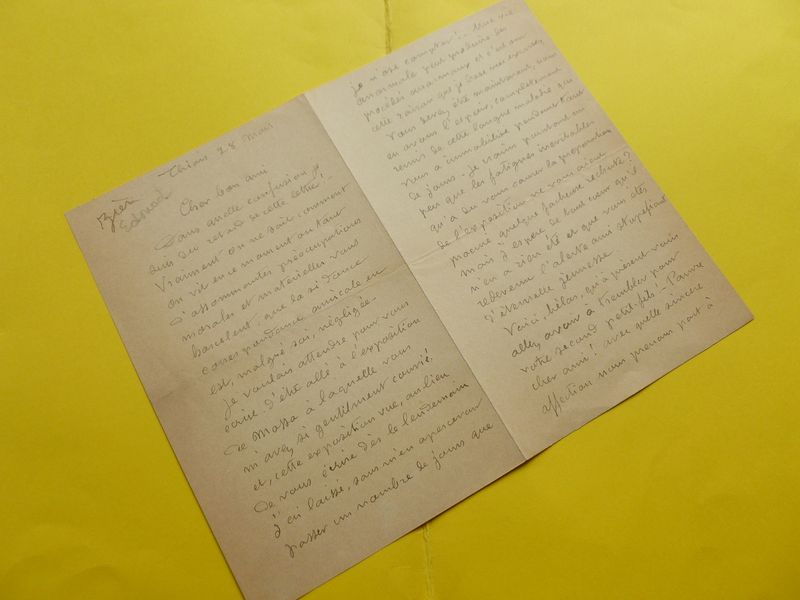 Bièr
Edouard
Thiais 28 Mars
Cher bon ami
Dans quelle confusion je
suis du retard de cette lettre!
Vraiment on ne sait comment
on vit en ce moment où tant
d'assommantes préoccupations
morales et matérielles vous
harcèlent, que la si douce
correspondance amicale en
est, malgré soi, négligée-
Je voulais attendre pour vous
écrire d'être allé à l'exposition
de Massa à laquelle vous
m'avez si gentiment convié!
et, cette exposition vue, au lieu
de vous écrire dès le lendemain
j'ai laissé, sans m'en apercevoir
passer un nombre de jours que
je n'ose compter!- Une vie
anormale peut produire des
procédés anormaux et c'est une
cette raison que je base mes excuses,
Vous devez être maintenant, nous
en avons l'espoir, complètement
remis de cette longue maladie qui
vous a immobilisé pendant tant
de jours- Je crains pourtant un
peu que les fatigues inévitables
qu'a du vous causer la préparation
de l'exposition ne vous aient
procuré quelque fâcheuse rechute?
mais j'espère de tout cœur qu'il
n'en a rien été et que vous êtes
redevenu l'alerte ami stupéfiant
d'éternelle jeunesse
Voici, hélas, qu'à présent vous
allez avoir à trembler pour
votre second petit-fils!- Pauvre
cher ami! avec quelle sincère
affection nous prenons part à